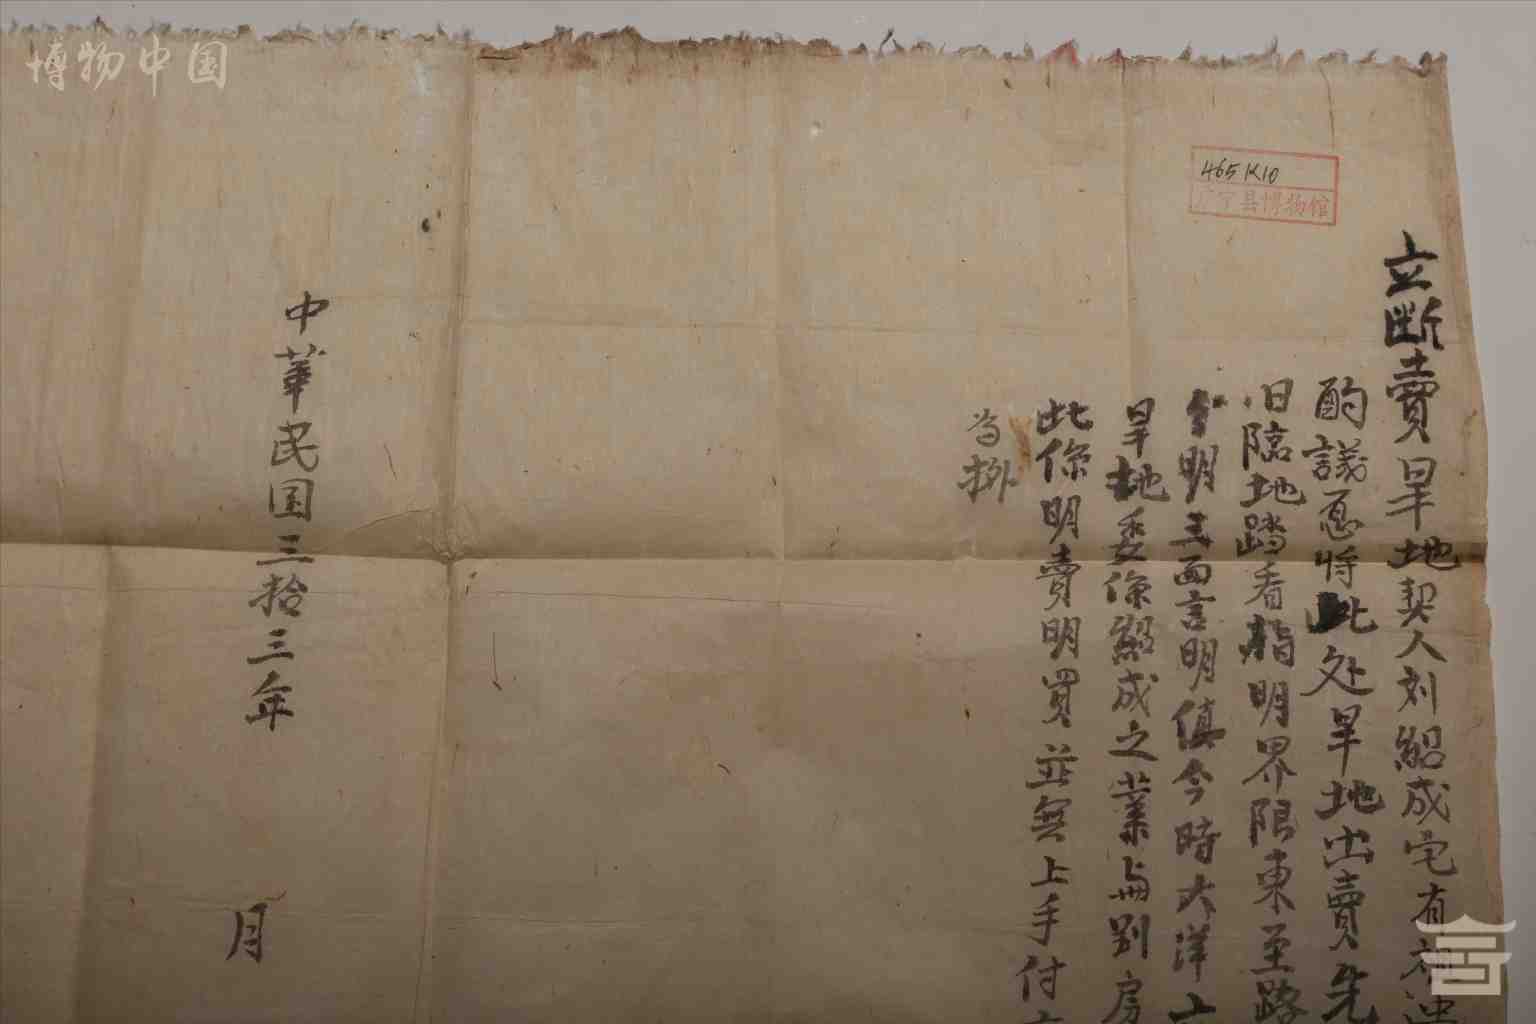 博物中国
465 K10
广宁县博物馆
立断賣旱地契人刘紹成宅有祖遗
酌議愿将此处旱地出賣先
日臨地踏看指明界限東至路
个明三面言明值今時大洋
旱地委係紹成之業與别房
此係明賣明買並無上手付
為拠
中華民国三拾三年
月